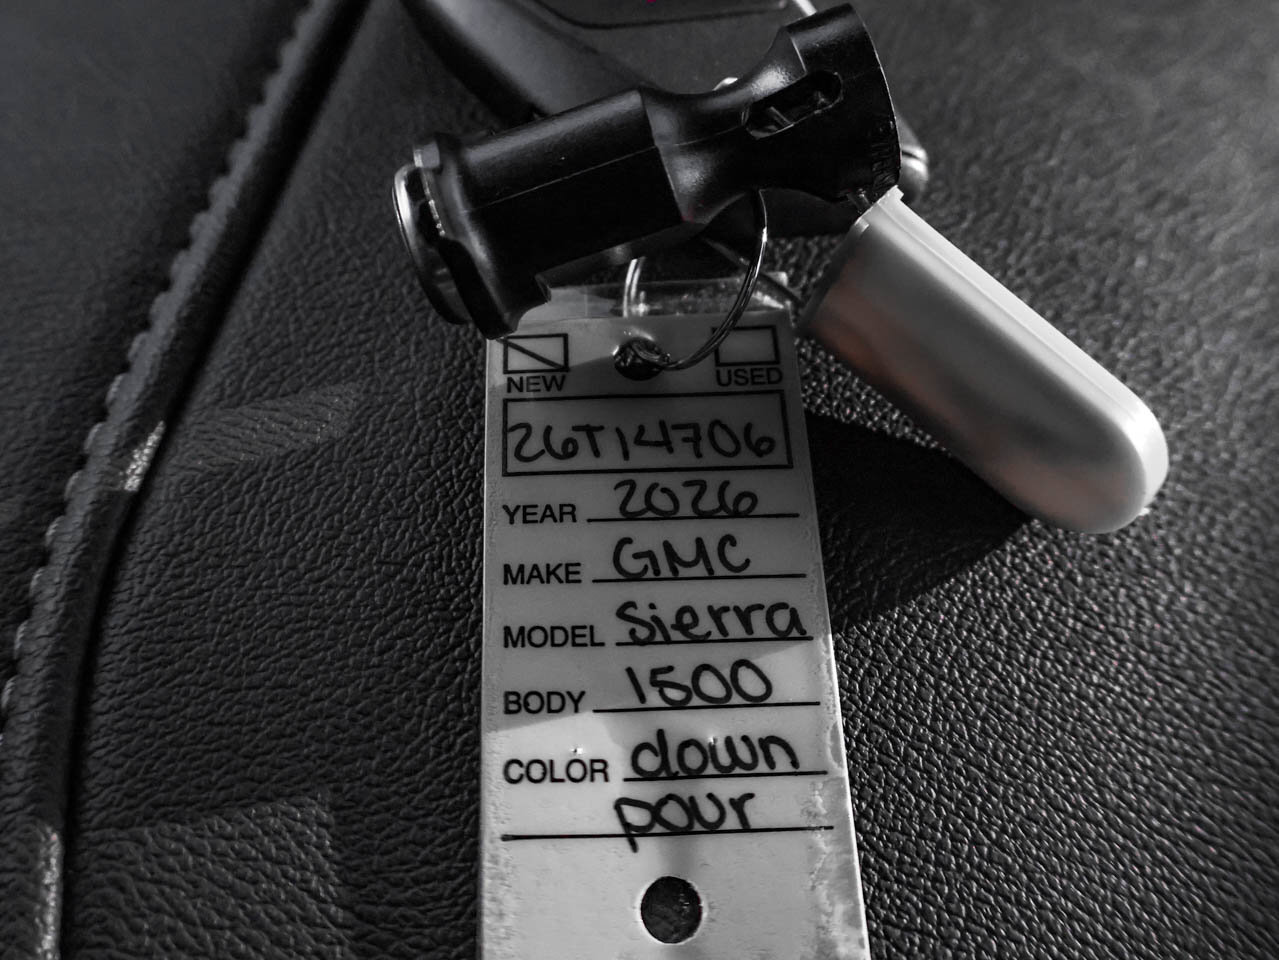 NEW USED
26T14706
YEAR 2026
MAKE GMC
MODEL Sierra
BODY 1500
COLOR down
pour